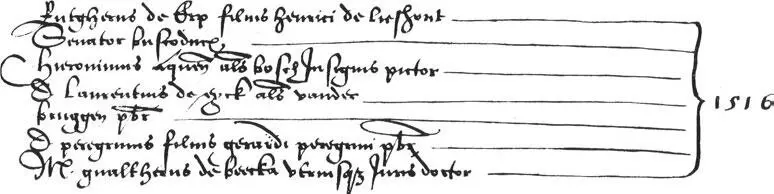 Rutgherus de Erp filius henrici de lieshout
Senator buscoducen
Hieronimus Aquen als bosch Insignis pictor
D laurentius de eyck als vander
bruggen pbr
D peregrinus filius gerardi peregrini pbr
M. gualtherus de beecka utriusqz Juris doctor
1516